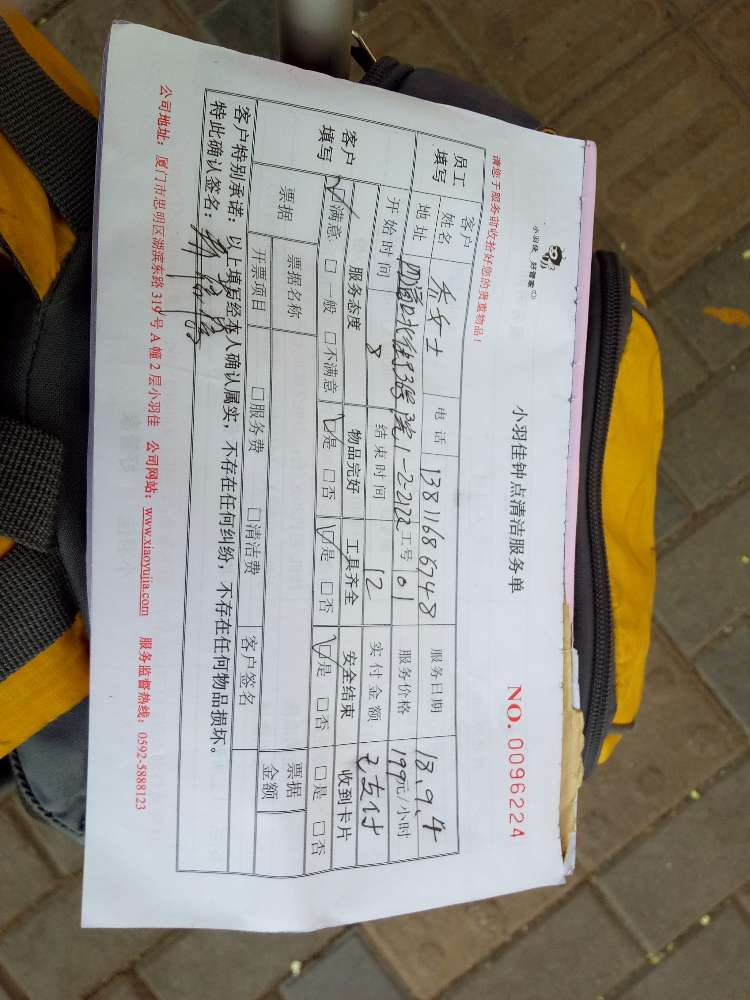 小羽佳 好管家
小羽佳钟点清洁服务单
NO. 0096224
请您于服务前收拾好您的贵重物品！
员工填写 客户姓名 女士 电话 13811686748 服务日期 18.9.4
地址 1-2-2122 工号 01 服务价格 199元/小时
开始时间 8 结束时间 12 实付金额 已支付
客户填写 服务态度 物品完好 工具齐全 安全结束 收到卡片
☑满意 □一般 □不满意 ☑是 □否 ☑是 □否 ☑是 □否 □是 □否
票据 票据名称 票据金额
开票项目 □服务费 □清洁费 客户签名
客户特别承诺：以上填写经本人确认属实，不存在任何纠纷，不存在任何物品损坏。
特此确认签名：
公司地址：厦门市思明区湖滨东路319号A幢2层小羽佳 公司网站：www.xiaoyujia.com 服务监督热线：0592-5888123